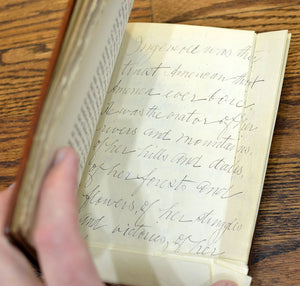 Ingersoll was the
truest American that
America ever bore.
He was the orator of her
rivers and mountains,
of her hills and dales,
of her forests and
flowers, of her struggles
and victories, of her